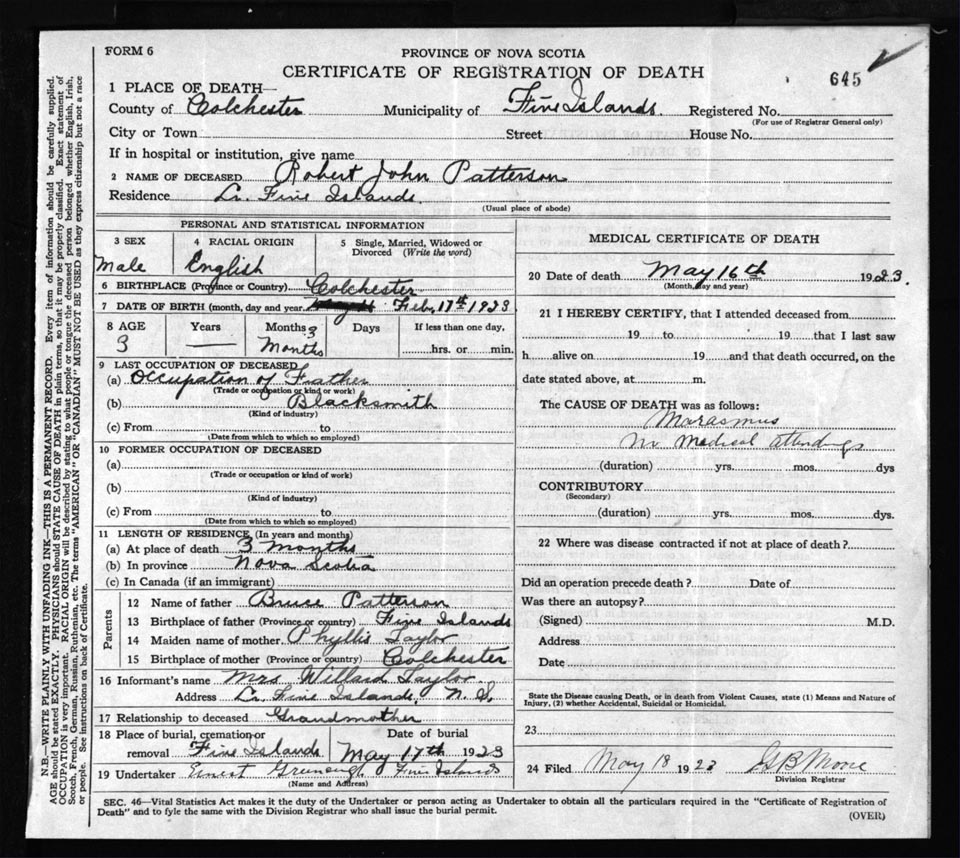 FORM 6
PROVINCE OF NOVA SCOTIA
CERTIFICATE OF REGISTRATION OF DEATH
645
1 PLACE OF DEATH—
County of Colchester Municipality of Five Islands Registered No.
(For use of Registrar General only)
City or Town Street House No.
If in hospital or institution, give name
2 NAME OF DECEASED Robert John Patterson
Residence Lr. Five Islands.
(Usual place of abode)
PERSONAL AND STATISTICAL INFORMATION
3 SEX
Male
4 RACIAL ORIGIN
English
5 Single, Married, Widowed or
Divorced (Write the word)
6 BIRTHPLACE (Province or Country) Colchester
7 DATE OF BIRTH (month, day and year) Feb. 17th 1923
8 AGE Years Months Days If less than one day,
3 — 3 Months hrs. or min.
9 LAST OCCUPATION OF DECEASED
(a) Occupation of Father
(Trade or occupation or kind or work)
(b) Blacksmith
(Kind of industry)
(c) From to
(Date from which to which so employed)
10 FORMER OCCUPATION OF DECEASED
(a)
(Trade or occupation or kind of work)
(b)
(Kind of industry)
(c) From to
(Date from which to which so employed)
11 LENGTH OF RESIDENCE (In years and months)
(a) At place of death 3 months
(b) In province Nova Scotia
(c) In Canada (if an immigrant)
Parents
12 Name of father Bruce Patterson
13 Birthplace of father (Province or country) Five Islands
14 Maiden name of mother Phyllis Taylor
15 Birthplace of mother (Province or country) Colchester
16 Informant's name Mrs Willard Taylor
Address Lr. Five Islands, N. S.
17 Relationship to deceased Grandmother
18 Place of burial, cremation or Date of burial
removal Five Islands May 17th 1923
19 Undertaker Ernest Five Islands
(Name and Address)
MEDICAL CERTIFICATE OF DEATH
20 Date of death May 16th 1923.
(Month, day and year)
21 I HEREBY CERTIFY, that I attended deceased from
19 to 19 that I last saw
h alive on 19 and that death occurred, on the
date stated above, at m.
The CAUSE OF DEATH was as follows:
Marasmus
no medical
(duration) yrs. mos. dys
CONTRIBUTORY
(Secondary)
(duration) yrs. mos. dys.
22 Where was disease contracted if not at place of death?
Did an operation precede death? Date of
Was there an autopsy?
(Signed) M.D.
Address
Date
State the Disease causing Death, or in death from Violent Causes, state (1) Means and Nature of
Injury, (2) whether Accidental, Suicidal or Homicidal.
23
24 Filed May 18 1923 Moore
Division Registrar
SEC. 46—Vital Statistics Act makes it the duty of the Undertaker or person acting as Undertaker to obtain all the particulars required in the "Certificate of Registration of
Death" and to fyle the same with the Division Registrar who shall issue the burial permit.
(OVER)
N.B.—WRITE PLAINLY WITH UNFADING INK—THIS IS A PERMANENT RECORD. Every item of information should be carefully supplied.
AGE should be stated EXACTLY. PHYSICIANS should STATE CAUSE OF DEATH in plain terms, so that it may be properly classified. Exact statement of
OCCUPATION is very important. RACIAL ORIGIN will be described by stating to what people or tongue the deceased person belonged whether English, Irish,
Scotch, French, German, Russian, Ruthenian, etc. The terms "AMERICAN" OR "CANADIAN" MUST NOT BE USED as they express citizenship but not a race
or people. See instructions on back of Certificate.